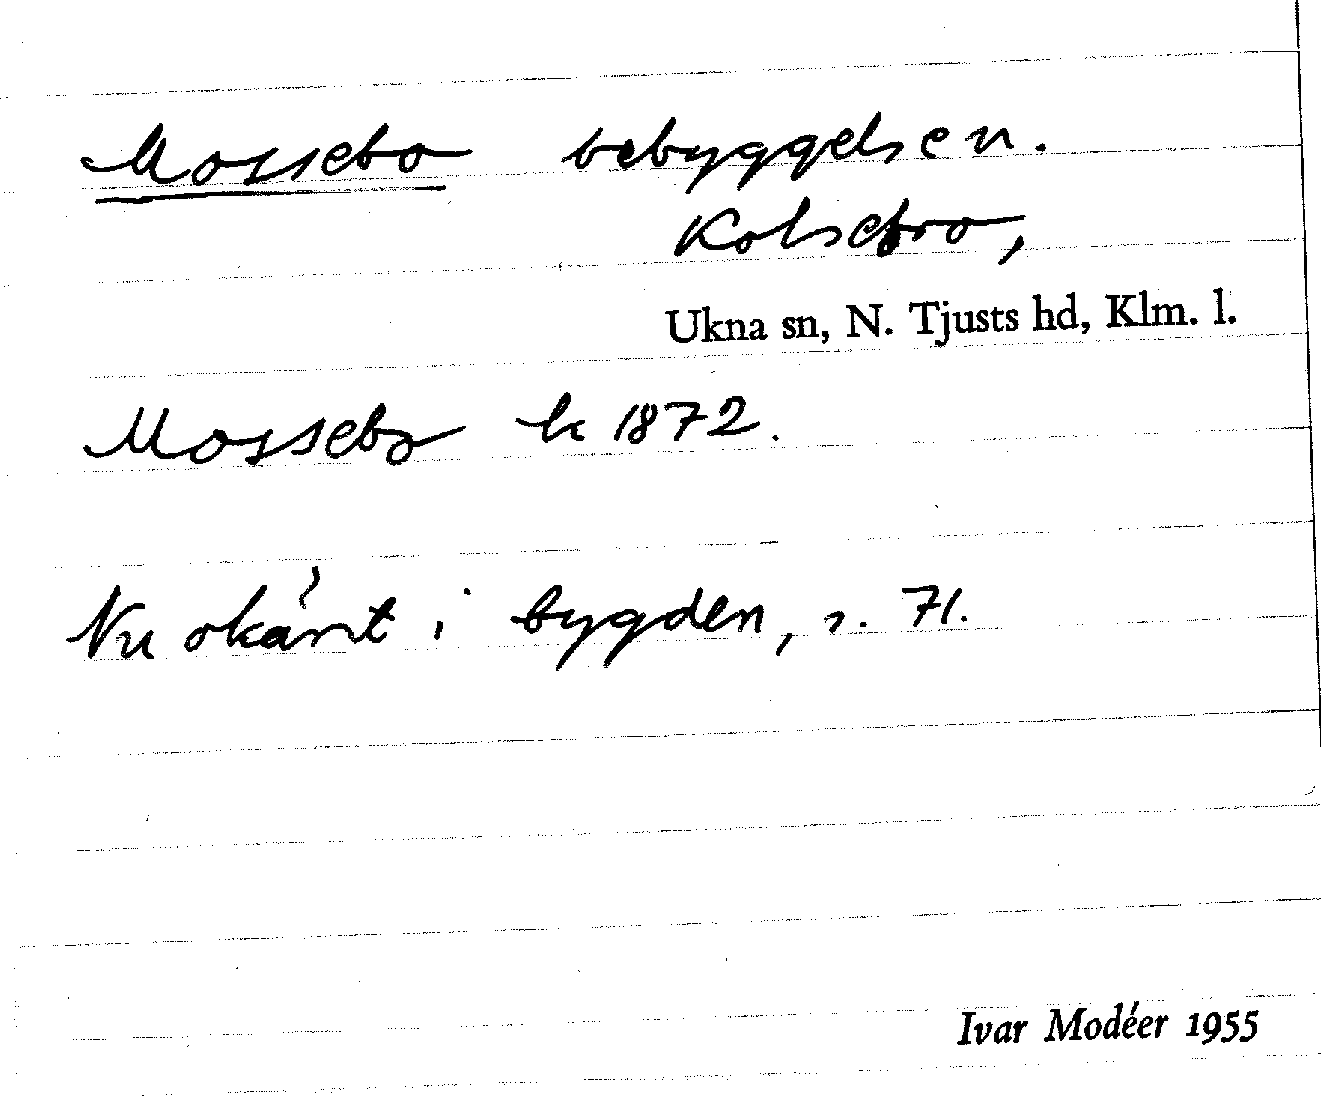 Mossebo bebyggelsen.
Kolsebro,
Ukna sn, N. Tjusts hd, Klm. l.
Mossebo k 1872.
Nu okänt i bygden, s. 71.
Ivar Modéer 1955